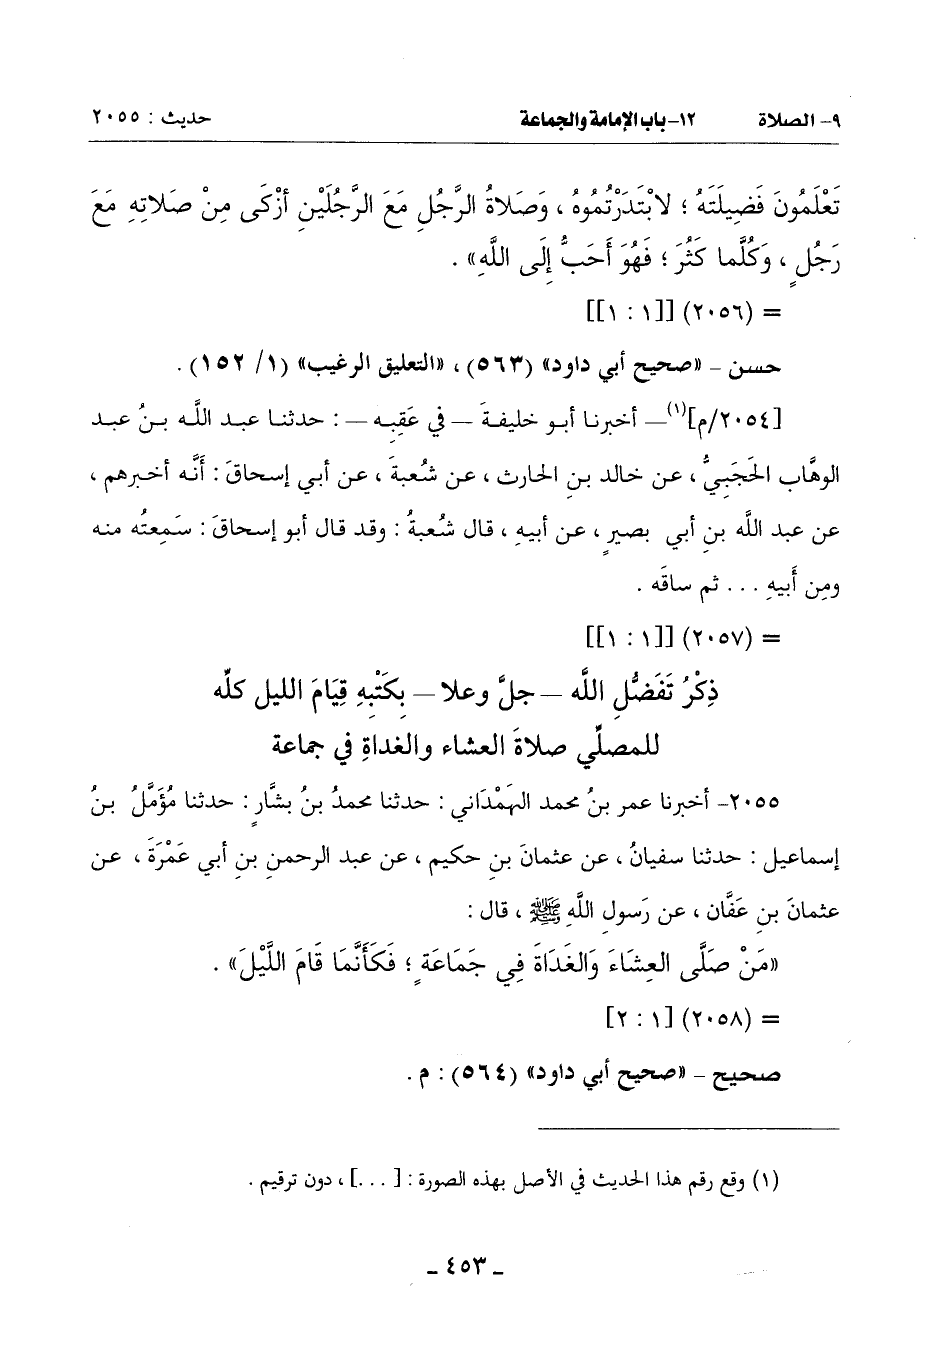 ٩- الصلاة ١٢- باب الإمامة والجماعة حديث : ٢٠٥٥
تَعْلَمُونَ فَضِيلَتَهُ ؛ لابْتَدَرْتُمُوهُ ، وَصَلاةُ الرَّجُلِ مَعَ الرَّجُلَيْنِ أزْكَى مِنْ صَلاتِهِ مَعَ
رَجُلٍ ، وَكُلَّما كَثُرَ ؛ فَهُوَ أَحَبُّ إِلَى اللَّهِ» .
= (٢٠٥٦) [[١ : ١]]
حسن – «صحيح أبي داود» (٥٦٣) ، «التعليق الرغيب» (١/ ١٥٢) .
[٢٠٥٤/م](١)– أخبرنا أبو خليفةَ – في عَقِبِه – : حدثنا عبد اللَّه بنُ عبد
الوهَّاب الحَجَبيُّ ، عن خالد بنِ الحارث ، عن شُعبةَ ، عن أبي إسحاقَ : أنَّه أخبرهم ،
عن عبد اللَّه بنِ أبي بصيرٍ ، عن أبيهِ ، قال شُعبةُ : وقد قال أبو إسحاقَ : سَمِعتُه منه
ومِن أَبيهِ ... ثم ساقَه .
= (٢٠٥٧) [[١ : ١]]
ذِكْرُ تَفَضُّلِ اللَّه – جلَّ وعلا – بِكَتْبِهِ قِيَامَ الليل كلِّه
للمصلِّي صلاةَ العشاء والغداةِ في جماعة
٢٠٥٥- أخبرنا عمر بنُ محمد الهَمْدَاني : حدثنا محمدُ بنُ بشَّارٍ : حدثنا مُؤَمَّلُ بنُ
إسماعيل : حدثنا سفيانُ ، عن عثمانَ بنِ حكيم ، عن عبد الرحمنِ بنِ أبي عَمْرَةَ ، عن
عثمانَ بنِ عَفَّان ، عن رَسولِ اللَّهِ ﷺ ، قال :
«مَنْ صَلَّى العِشَاءَ وَالغَدَاةَ فِي جَمَاعَةٍ ؛ فَكَأَنَّمَا قَامَ اللَّيْلَ» .
= (٢٠٥٨) [١ : ٢]
صحيح – «صحيح أبي داود» (٥٦٤) : م .
(١) وقع رقم هذا الحديث في الأصل بهذه الصورة : [ ... ] ، دون ترقيم .
- ٤٥٣ -